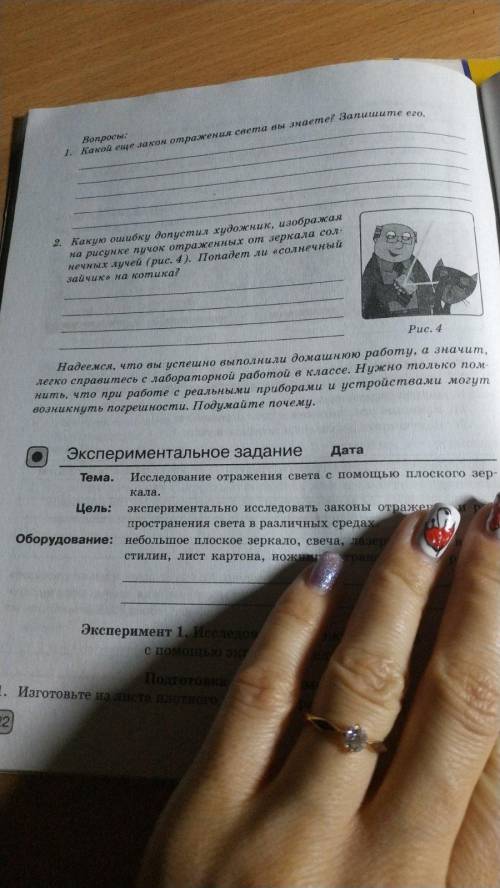 Вопросы:
1. Какой еще закон отражения света вы знаете? Запишите его.
2. Какую ошибку допустил художник, изображая
на рисунке пучок отраженных от зеркала сол-
нечных лучей (рис. 4). Попадет ли «солнечный
зайчик» на котика?
Рис. 4
Надеемся, что вы успешно выполнили домашнюю работу, а значит,
легко справитесь с лабораторной работой в классе. Нужно только пом-
нить, что при работе с реальными приборами и устройствами могут
возникнуть погрешности. Подумайте почему.
Экспериментальное задание Дата
Тема. Исследование отражения света с помощью плоского зер-
кала.
Цель: экспериментально исследовать законы
пространения света в различных средах.
Оборудование: небольшое плоское зеркало, свеча,
стилин, лист картона,
Эксперимент 1.
с помощью
1. Изготовьте из листа плотного
22